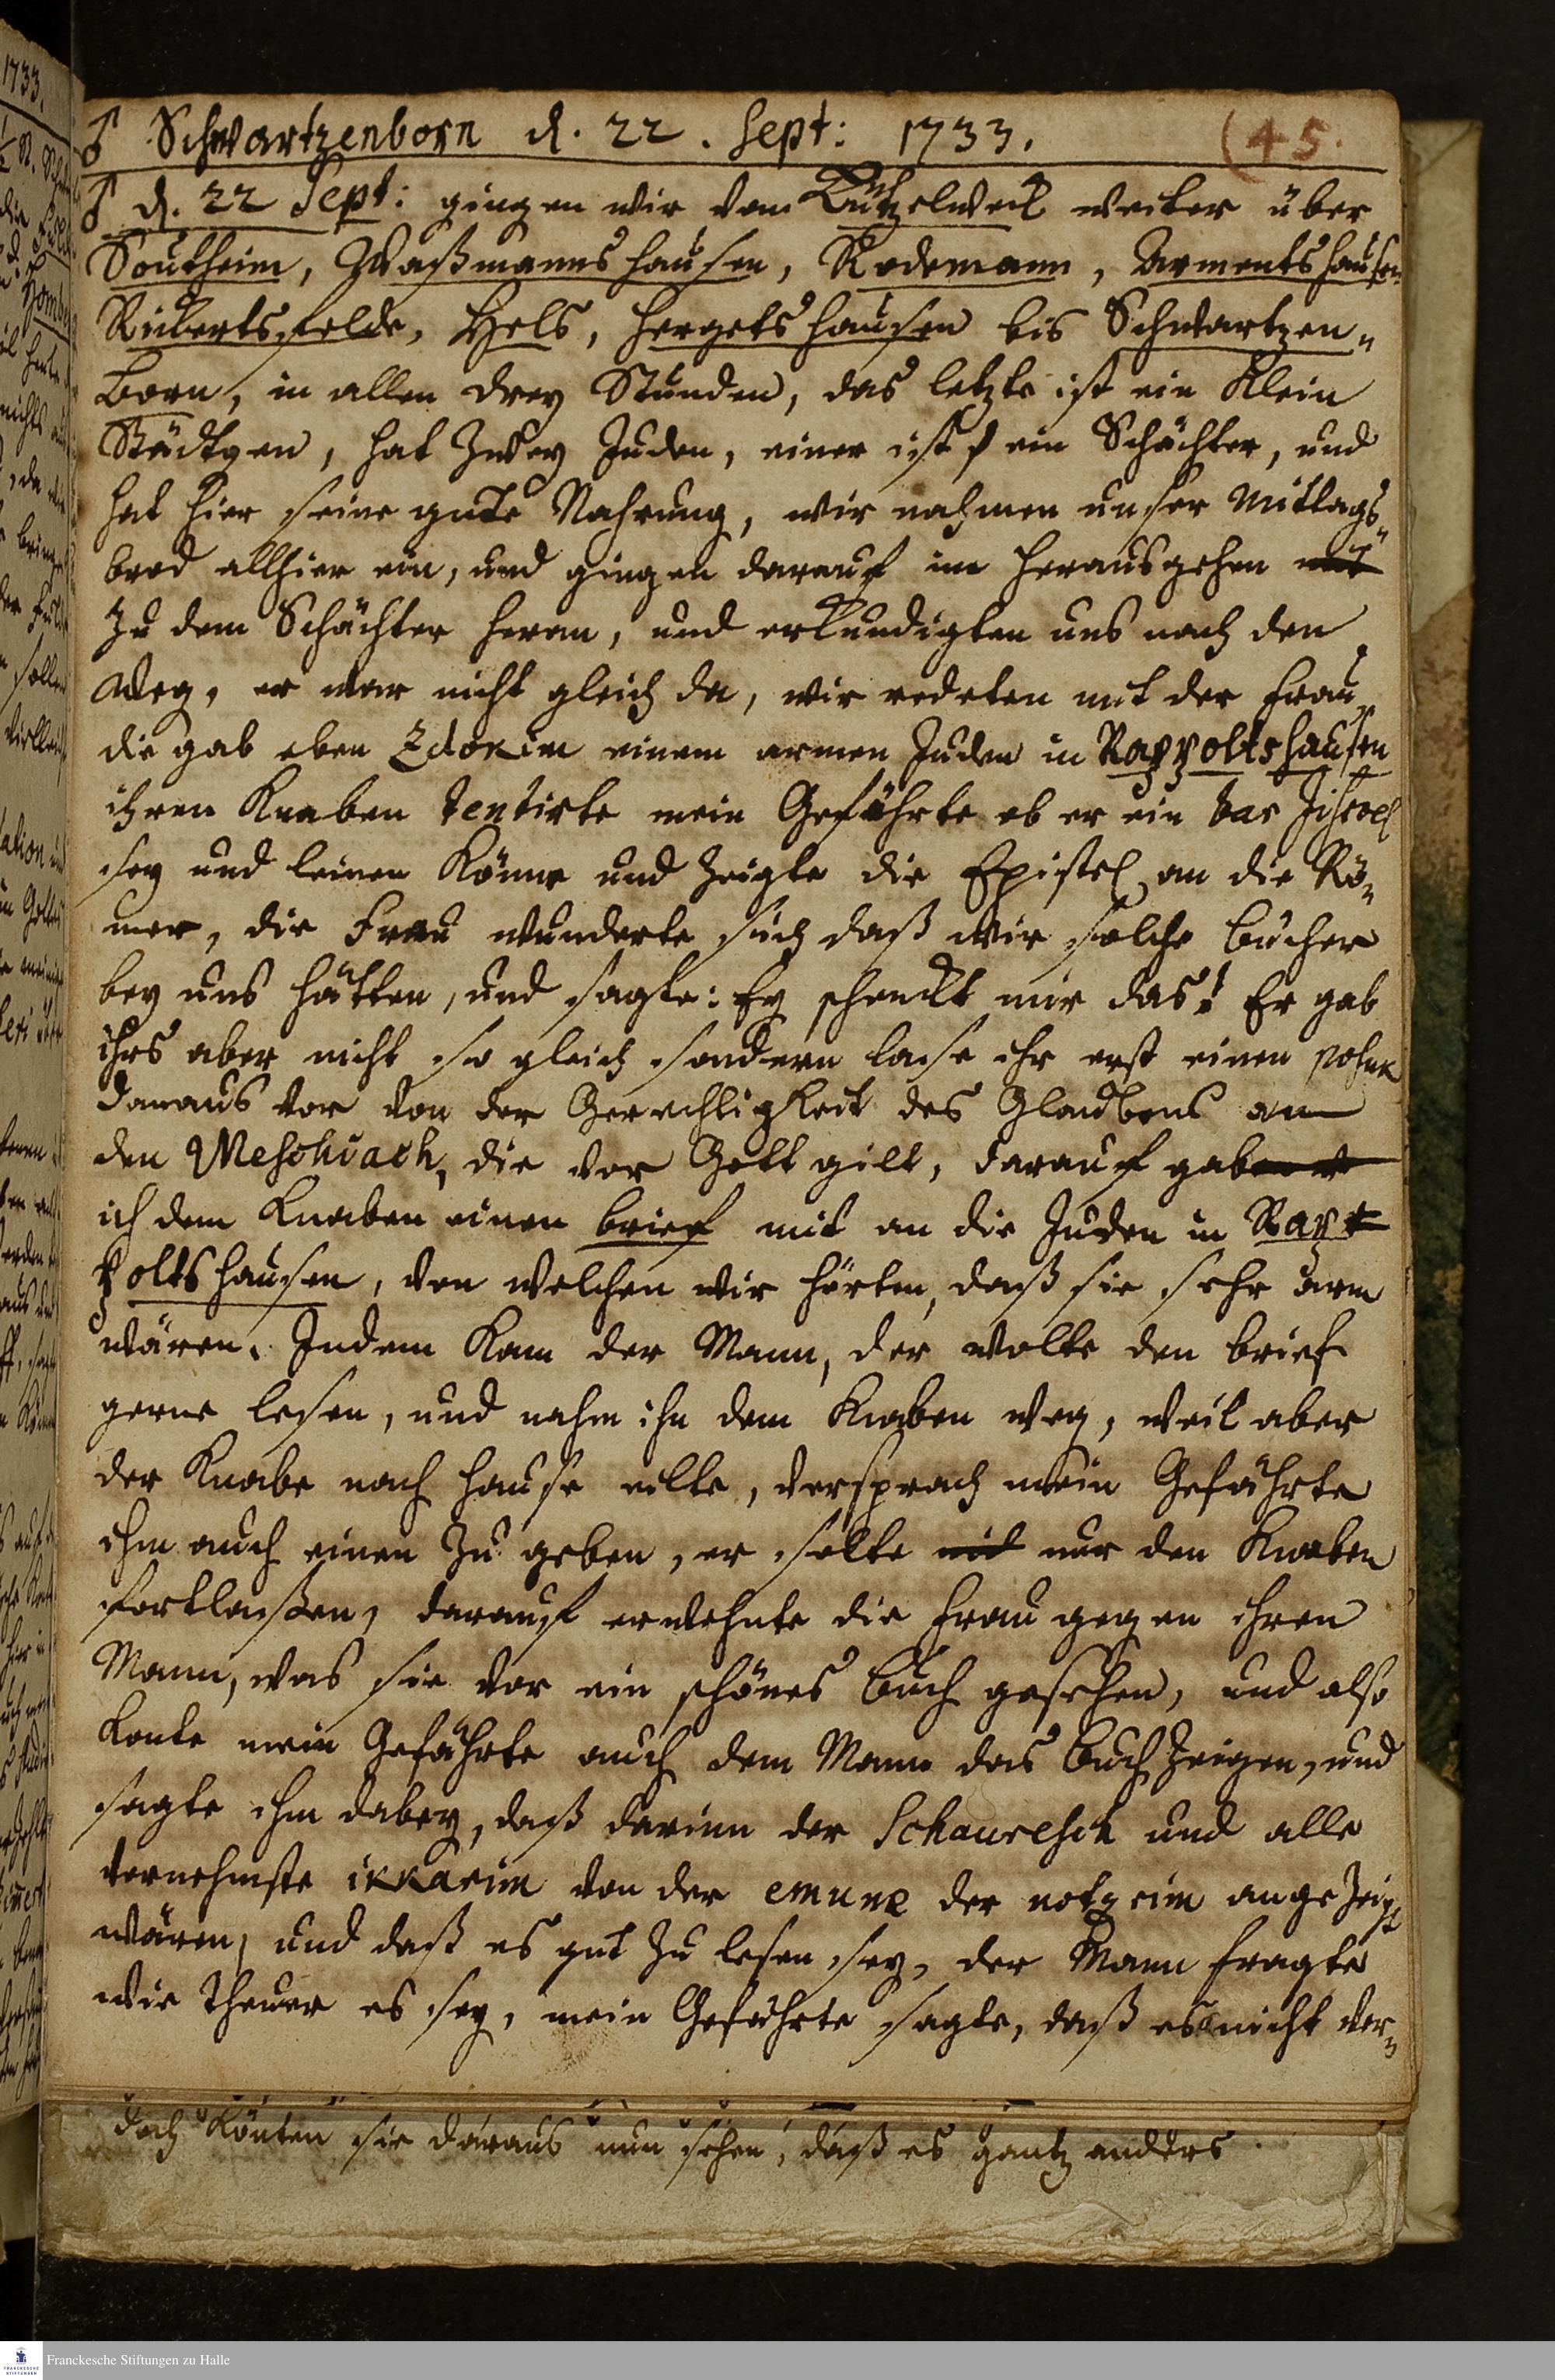 ♂ Schwartzenborn d. 22. Sept: 1733. (45.
♂ d. 22 Sept: gingen wir von Lützelweil weiter über
Southeim, Waßmannshausen, Rodemann, Armentshausen
Rückertsfelde, Hels, Hergetshausen bis Schwartzen-
born, in allen drey Stunden, das letzte ist ein klein
Städtgen, hat zwey Juden, einer ist ein Schächter, und
hat hier seine gute Nahrung, wir nahmen unser Mittags-
brod allhier ein, und gingen darauf im herausgehen mit
zu dem Schächter heran, und erkundigten uns nach den
Weg, er war nicht gleich da, wir redeten mit der Frau,
die gab eben Zdokim einem armen Juden in Rappoltshausen
ihren Knaben tentirte mein Gefährte ob er ein bar Jisroel
sey und leinen könne und zeigte die Epistel an die Rö-
mer, die Frau wunderte sich daß wir solche bücher
bey uns hätten, und sagte: Ey schenckt mir das! Er gab
ihrs aber nicht so gleich sondern lase ihr erst einen posuk
daraus vor von der Gerechtigkeit des Glaubens an
den Meschiach, die vor Gott gilt, darauf gab
ich dem Knaben einen brief mit an die Juden in Rap-
poltshausen, von welchen wir hörten, daß sie sehr arm
wären. Indem kam der Mann, der wolte den brief
gerne lesen, und nahm ihn dem Knaben weg, weil aber
der Knabe nach Hause eilte, versprach mein Gefährte
ihm auch einen zu geben, er solte mit nur den Knaben
fortlaßen, darauf erwehnte die Frau gegen ihren
Mann, was sie vor ein schönes buch gesehen, und also
konte mein Gefährte auch dem Mann das buch zeigen, und
sagte ihm dabey, daß darinn der Schauresch und alle
vornehmste ikkarim von der emune der notzrim angezeigt
wären, und daß es gut zu lesen sey, der Mann fragte
wie theuer es sey, mein Gefährte sagte, daß es nicht ver-
doch könten sie daraus nun sehen, daß es gantz anders
Franckesche Stiftungen zu Halle